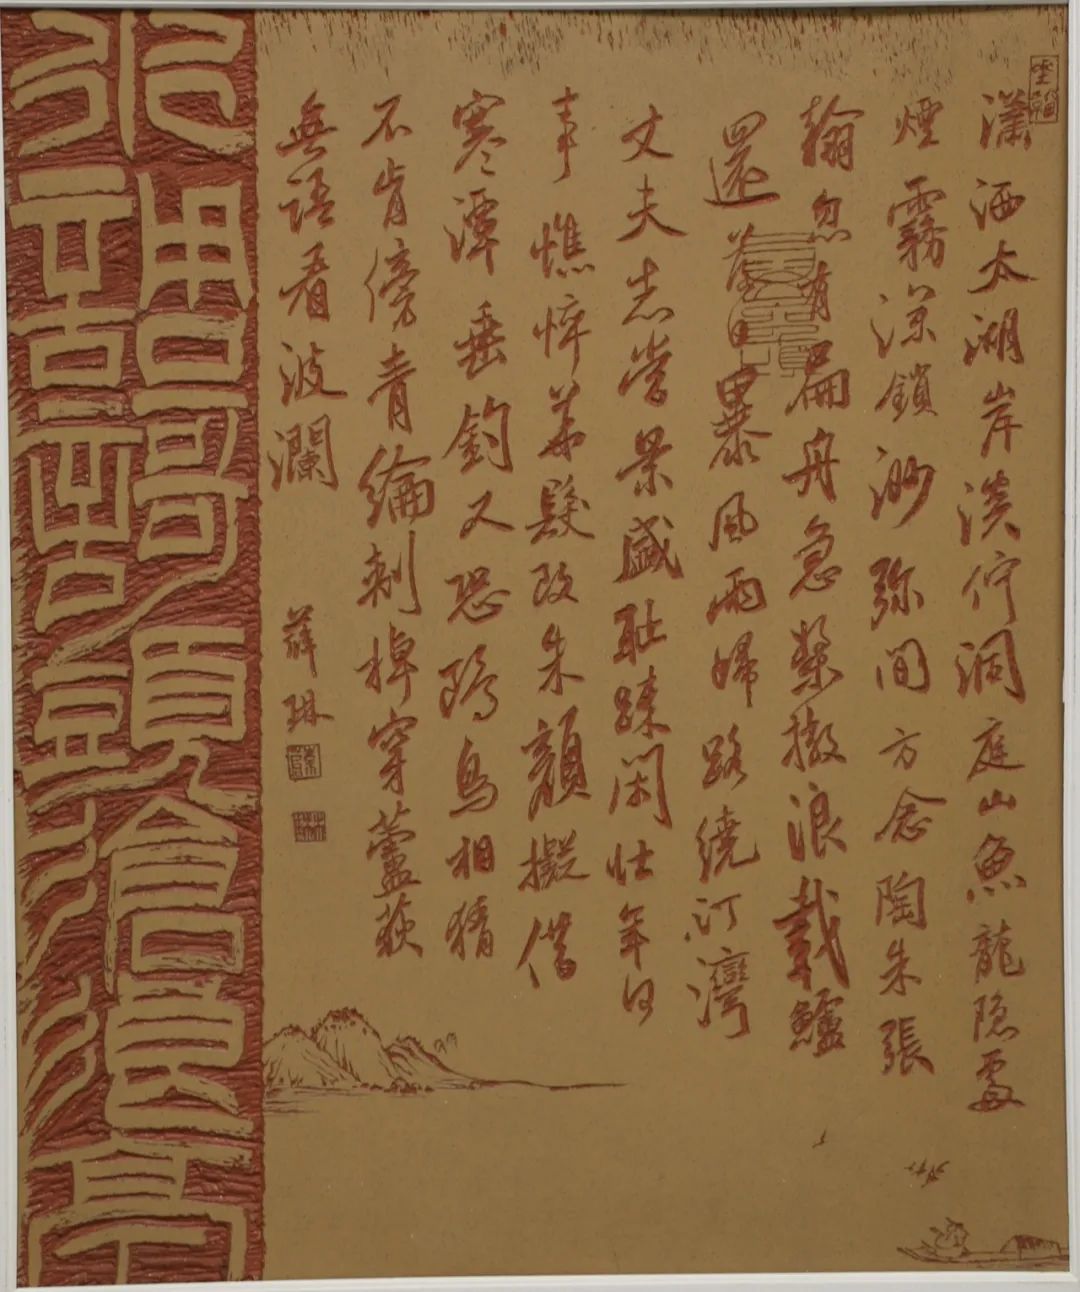 瀟洒太湖岸淡佇洞庭山魚龍隐處
煙霧深鎖渺弥間方念陶朱張
翰忽有扁舟急槳撇浪載鱸
還落日暴風雨歸路繞汀灣
丈夫志當景盛耻踈閑壮年何
事憔悴華髮改朱顔擬借
寒潭垂釣又恐鷗鳥相猜
不肯傍青綸刺棹穿蘆荻
無語看波瀾
薛琳
水調歌頭滄浪亭